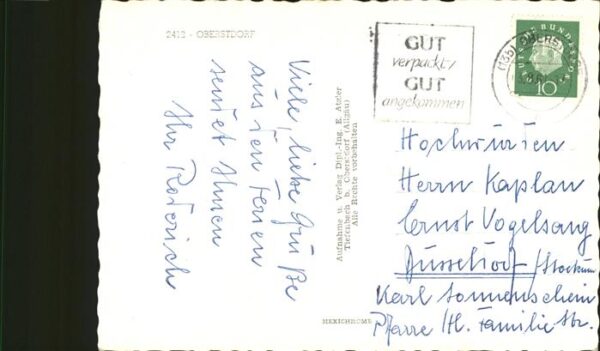 2412 - OBERSTDORF
Viele, liebe Grüße
aus den Ferien
sendet Ihnen
Ihr Roderich
Aufnahme u. Verlag Dipl.-Ing. E. Atzler
Tiefenbach b. Oberstdorf (Allgäu)
Alle Rechte vorbehalten
MEXICHROME
GUT
verpackt/
GUT
angekommen
(13b) OBERST
DEUTSCHE BUNDESPOST
10
Hochwürden
Herrn Kaplan
Ernst Vogelsang
Düsseldorf/Stockum
Karl Sonnenschein
Pfarre Hl. Familie Str.